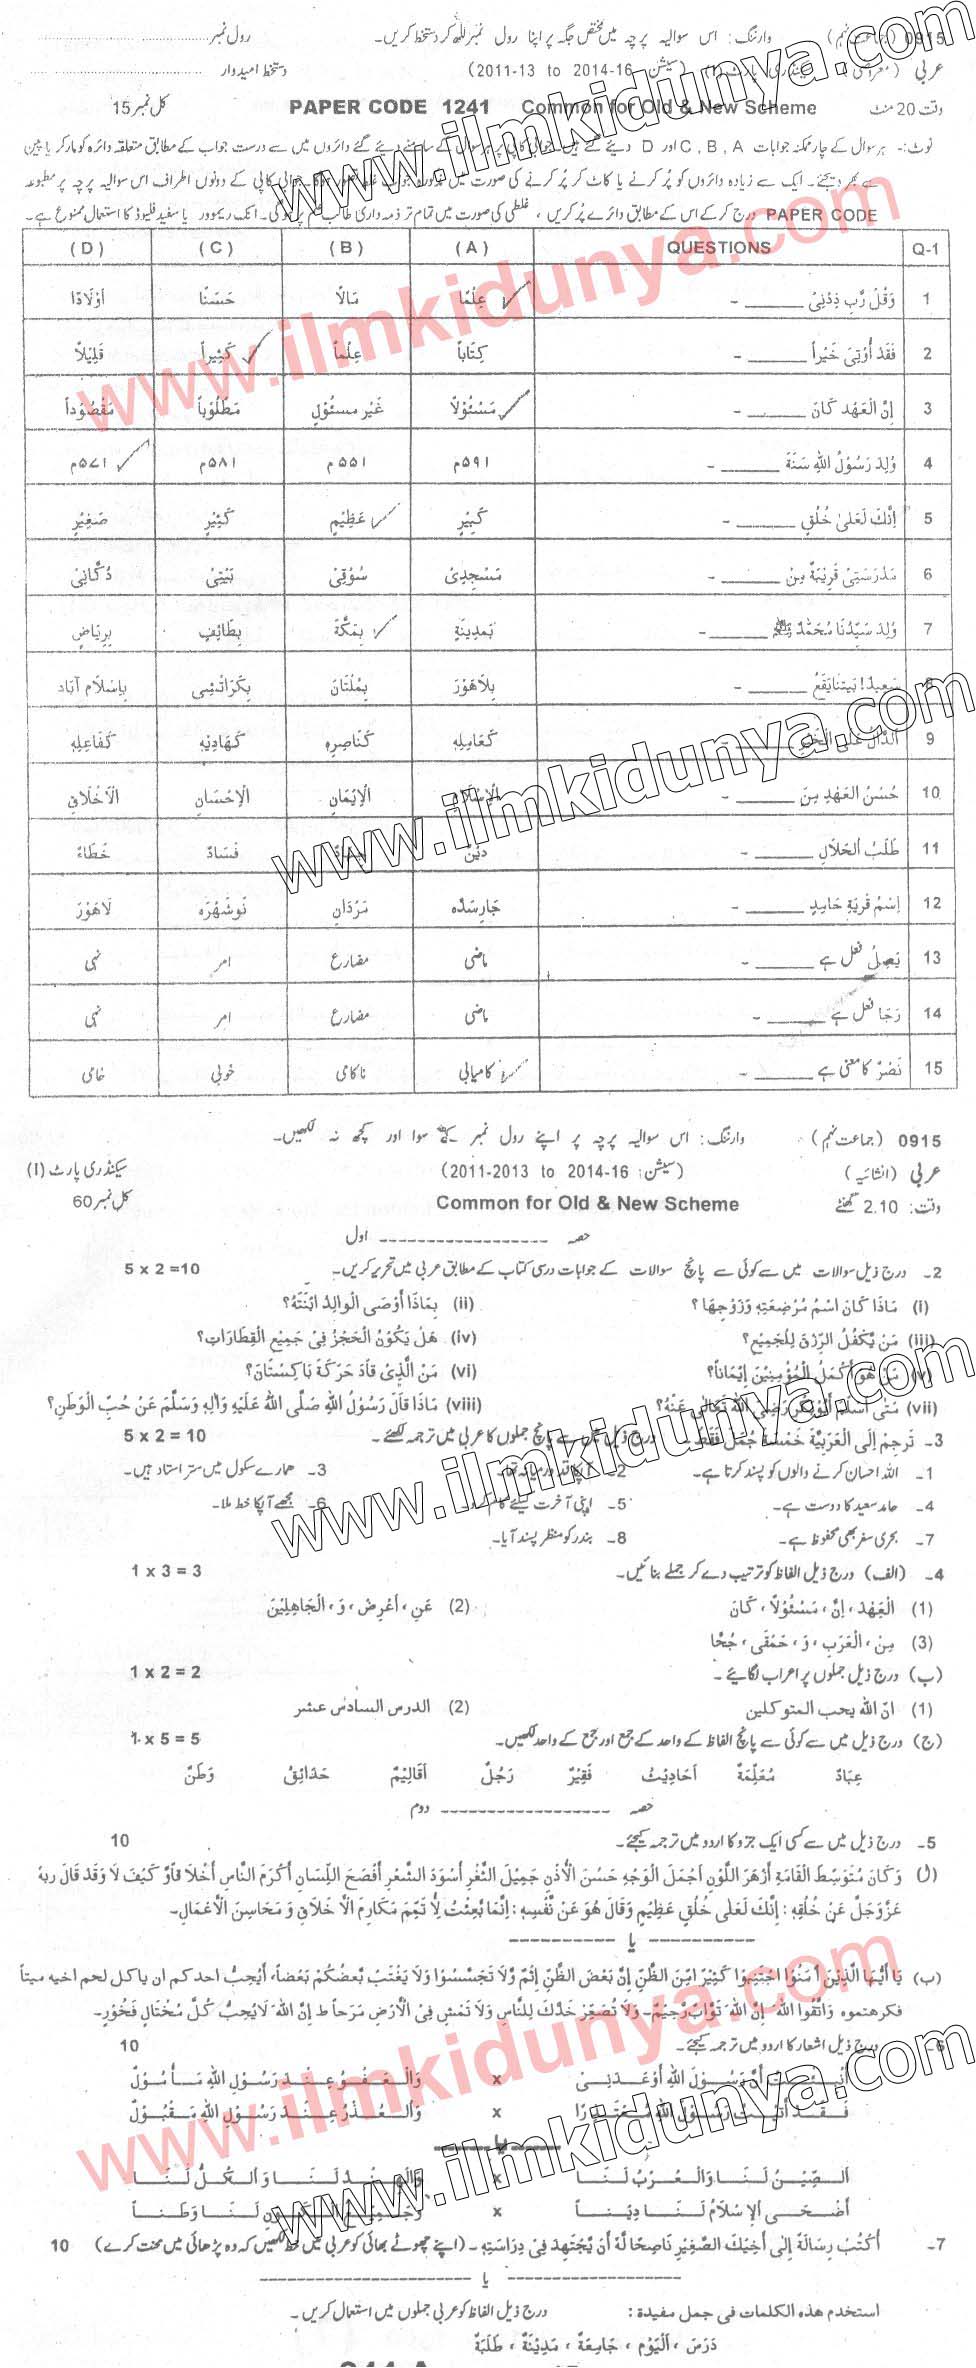 0915 (جماعت نہم) وارننگ: اس سوالیہ پرچہ میں مختص جگہ پر اپنا رول نمبر لکھ کر دستخط کریں۔ رول نمبر
عربی (معروضی) (سیشن: 2011-13 to 2014-16) دستخط امیدوار
وقت 20 منٹ Common for Old & New Scheme PAPER CODE 1241 کل نمبر 15
نوٹ:- ہر سوال کے چار ممکنہ جوابات A , B , C اور D دیئے گئے ہیں۔ جوابی کاپی پر ہر سوال کے سامنے دیئے گئے دائروں میں سے درست جواب کے مطابق متعلقہ دائرہ کو مارکر یا پین
سے بھر دیجئے۔ ایک سے زیادہ دائروں کو پُر کرنے یا کاٹ کر پُر کرنے کی صورت میں مذکورہ جواب غلط تصور ہوگا۔ جوابی کاپی کے دونوں اطراف اس سوالیہ پرچہ پر مطبوعہ
PAPER CODE درج کر کے اس کے مطابق دائرے پُر کریں، غلطی کی صورت میں تمام تر ذمہ داری طالب علم پر ہوگی۔ انک ریموور یا سفید فلیوڈ کا استعمال ممنوع ہے۔
Q-1 QUESTIONS (A) (B) (C) (D)
1 وَقُلْ رَّبِّ زِدْنِیْ ______ - عِلْمًا مَالًا حَسَنًا اَوْلَادًا
2 فَقَدْ أُوْتِیَ خَیْراً ______ - کِتَاباً عِلْماً کَثِیْراً قَلِیْلاً
3 إِنَّ الْعَهْدَ کَانَ ______ - مَسْئُوْلاً غَیْر مسئُوْلٍ مَطْلُوْباً مَقْصُوْداً
4 وُلِدَ رَسُوْلُ اللهِ سَنَةَ ______ - ۵۹۱م ۵۵۱م ۵۸۱م ۵۷۱م
5 اِنَّكَ لَعَلیٰ خُلُقٍ ______ - کَبِیْرٍ عَظِیْمٍ کَثِیْرٍ صَغِیْرٍ
6 مَدْرَسَتِیْ قَرِیْبَةٌ مِنْ ______ - مَسْجِدِیْ سُوْقِیْ بَیْتِیْ دُکَّانِیْ
7 وُلِدَ سَیِّدُنَا مُحَمَّدٌ ﷺ ______ - بَمدِیْنَةٍ بِمَکَّةَ بِطَائِفٍ بِرِیَاضٍ
8 سَعِیدٌ! بَیتنا یَقَعُ ______ - بِلَاهَوْرَ بِمُلْتَانَ بِکَرَاتْشِی بِاِسْلَام آبَاد
9 اَلدَّالُ عَلَی الْخَیْرِ ______ - کَعَامِلِهٖ کَنَاصِرِهٖ کَهَادِیْهِ کَفَاعِلِهٖ
10 حُسْنُ الْعَهْدِ مِنَ ______ - الْاِسْلَامِ الْاِیْمَانِ الْاِحْسَانِ الْاَخْلَاقِ
11 طَلَبُ الْحَلَالِ ______ - دَیْنٌ فَسَادٌ خَطَاءٌ
12 اِسْمُ قَرْیَةِ حَامِدٍ ______ - جَارسَدّه مَرْدَانِ نَوشَهْرَه لَاهَوْرَ
13 یَصِلُ فعل ہے ______ - ماضی مضارع امر نہی
14 رَجَا فعل ہے ______ - ماضی مضارع امر نہی
15 نَصْرٌ کا معنی ہے ______ - کامیابی ناکامی خوبی خامی
0915 (جماعت نہم) وارننگ: اس سوالیہ پرچہ پر اپنے رول نمبر کے سوا اور کچھ نہ لکھیں۔
عربی (انشائیہ) (سیشن: 2011-2013 to 2014-16) سیکنڈری پارٹ (I)
وقت: 2.10 گھنٹے Common for Old & New Scheme کل نمبر 60
حصہ ------------------ اول
2۔ درج ذیل سوالات میں سے کوئی سے پانچ سوالات کے جوابات درسی کتاب کے مطابق عربی میں تحریر کریں۔ 5 x 2 =10
(i) مَاذَا کَانَ اسْمُ مُرْضِعَتِهٖ وَزَوْجِهَا ؟ (ii) بِمَاذَا أَوْصَی الْوالِدُ ابْنَتَهُ؟
(iii) مَنْ یَّکْفُلُ الرِّزْقَ لِلْجَمِیْعِ؟ (iv) هَلْ یَکُوْنُ الْحَجْزُ فِیْ جَمِیْعِ الْقِطَارَاتِ؟
(v) مَنْ هُوَ أَکْمَلُ الْمُؤْمِنِیْنَ إِیْمَاناً؟ (vi) مَنِ الَّذِیْ قَادَ حَرَکَةَ بَاکِسْتَانَ؟
(vii) مَتٰی أَسْلَمَ أَبُوْبَکْرٍ رَضِیَ اللهُ تَعَالٰی عَنْهُ؟ (viii) مَاذَا قَالَ رَسُوْلُ اللهِ صَلَّی اللهُ عَلَیْهِ وَاٰلِهٖ وَسَلَّمَ عَنْ حُبِّ الْوَطَنِ؟
3۔ تَرجِمْ إِلَی الْعَرَبِیَّةِ خَمْسَةَ جُمَلٍ فَقَط۔ درج ذیل میں سے پانچ جملوں کا عربی میں ترجمہ لکھئے۔ 5 x 2 = 10
1۔ اللہ احسان کرنے والوں کو پسند کرتا ہے۔ 2۔ آپکا قد درمیانہ تھا۔ 3۔ ہمارے سکول میں ستر استاد ہیں۔
4۔ حامد سعید کا دوست ہے۔ 5۔ اپنی آخرت کیلئے کام کرو۔ 6۔ مجھے آپکا خط ملا۔
7۔ بحری سفر بھی محفوظ ہے۔ 8۔ بندر کو منظر پسند آیا۔
4۔ (الف) درج ذیل الفاظ کو ترتیب دے کر جملے بنائیں۔ 1 x 3 = 3
(1) الْعَهْدَ ، اِنَّ ، مَسْئُوْلاً ، کَانَ (2) عَنِ ، أَعْرِضْ ، وَ ، الْجَاهِلِیْنَ
(3) مِنْ ، الْعَرَبِ ، وَ ، حَمْقٰی ، جُحَا
(ب) درج ذیل جملوں پر اعراب لگایئے ۔ 1 x 2 = 2
(1) انّ الله یحب المتوکلین (2) الدرس السادس عشر
(ج) درج ذیل میں سے کوئی سے پانچ الفاظ کے واحد کے جمع اور جمع کے واحد لکھیں۔ 1 x 5 = 5
عِبَادٌ مُعَلِّمَةٌ أَحَادِیْثُ فَقِیْرٌ رَجُلٌ أَقَالِیْمُ حَدَائِقُ وَطَنٌ
حصہ ------------------ دوم
5۔ درج ذیل میں سے کسی ایک جزو کا اردو میں ترجمہ کیجئے۔ 10
(ا) وَکَانَ مُتَوَسِّطَ الْقَامَةِ أَزْهَرَ اللَّوْنِ أَجْمَلَ الْوَجْهِ حَسَنَ الْأُذُنِ جَمِیْلَ الثَّغْرِ أَسْوَدَ الشَّعْرِ أَفْصَحَ اللِّسَانِ أَکْرَمَ النَّاسِ أَخْلَا قاً وَ کَیْفَ لَا وَ قَدْ قَالَ ربهٗ
عَزَّوَجَلَّ عَنْ خُلُقِهٖ : إِنَّكَ لَعَلٰی خُلُقٍ عَظِیْمٍ وَقَالَ هُوَ عَنْ نَّفْسِهٖ : إِنَّمَا بُعِثْتُ لِأُ تَمِّمَ مَکَارِمَ الْأَ خْلَاقِ وَ مَحَاسِنَ الْأَعْمَالِ۔
---------- یا ----------
(ب) یَا أَیُّهَا الَّذِیْنَ اٰمَنُوْا اجْتَنِبُوْا کَثِیْرًا مِّنَ الظَّنِّ اِنَّ بَعْضَ الظَّنِّ اِثْمٌ وَّلَا تَجَسَّسُوْا وَلَا یَغْتَبْ بَّعْضُکُمْ بَعْضاً۔ أَیُحِبُّ احدکم ان یاکل لحم اخیه میتاً
فکرهتموه وَاتَّقُوا اللهَ اِنَّ اللهَ تَوَّابٌ رَّحِیْمٌ۔ وَلَا تُصَعِّرْ خَدَّكَ لِلنَّاسِ وَلَا تَمْشِ فِی الْأَرْضِ مَرَحاً ط اِنَّ اللهَ لَا یُحِبُّ کُلَّ مُخْتَالٍ فَخُوْرٍ۔
6۔ درج ذیل اشعار کا اردو میں ترجمہ کیجئے۔ 10
أُنْبِئْتُ أَنَّ رَسُوْلَ اللهِ أَوْعَدَنِیْ x وَالْعَفْوُ عِنْدَ رَسُوْلِ اللهِ مَأْمُوْلٌ
فَقَدْ أَتَیْتُ رَسُوْلَ اللهِ مُعْتَذِرًا x وَالْعُذْرُ عِنْدَ رَسُوْلِ اللهِ مَقْبُوْلٌ
------ یا ------
اَلصِّیْنُ لَنَا وَالْعُرْبُ لَنَا x وَالْهِنْدُ لَنَا وَالْکُلُّ لَنَا
أَضْحَی الْاِسْلَامُ لَنَا دِیْناً x وَجَمِیْعُ الْکَوْنِ لَنَا وَطَناً
7۔ أُکْتُبْ رِسَالَةً إِلٰی أَخِیْكَ الصَّغِیْرِ نَاصِحًا لَهٗ أَنْ یَّجْتَهِدَ فِیْ دِرَاسَتِهٖ۔ (اپنے چھوٹے بھائی کو عربی میں خط لکھیں کہ وہ پڑھائی میں محنت کرے) 10
---------- یا ----------
استخدم هذه الکلمات فی جمل مفیدة : درج ذیل الفاظ کو عربی جملوں میں استعمال کریں۔
دَرَسَ ، اَلْیَوْمَ ، جَامِعَةٌ ، مَدِیْنَةٌ ، طَلَبَةٌ
www.ilmkidunya.com